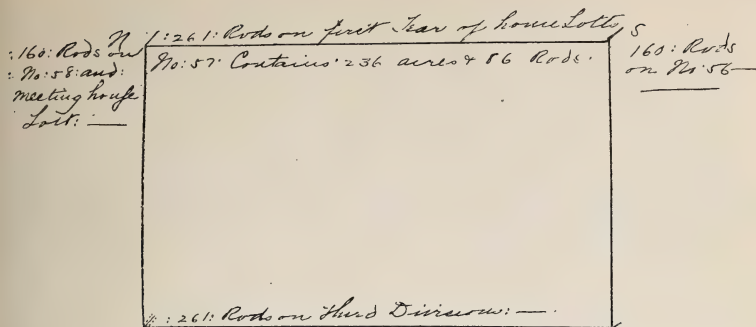 N :261: Rods on first Tear of house Lotts S
:160: Rods on
: No:58: and:
meeting house
Lott: —
No: 57: Contains: 236 acres & 86 Rods.
160: Rods
on No 56—
: 261: Rods on Third Division: —.